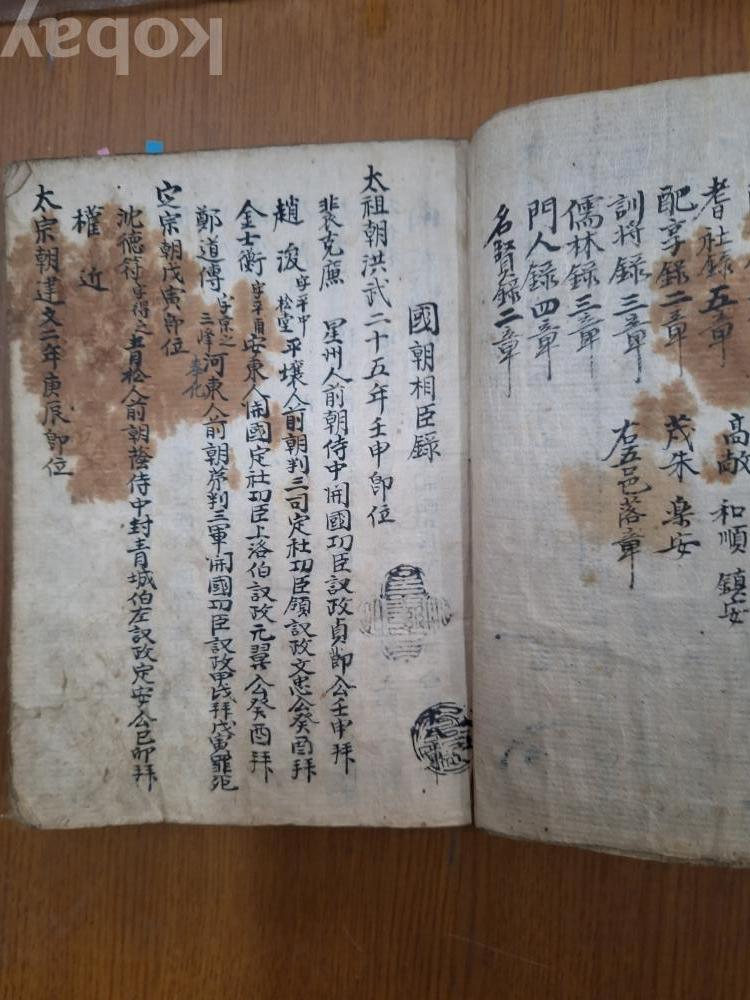 耆社錄五章 高敞 和順 鎮安
配享錄二章 茂朱 樂安
訓將錄三章 右五邑落章
儒林錄三章
門人錄四章
名賢錄二章
國朝相臣錄
太祖朝洪武二十五年壬申卽位
裴克廉 星州人前朝侍中開國功臣議政貞節公壬申拜
趙浚 字平中 松堂 平壤人前朝判三司定社功臣領議政文忠公癸酉拜
金士衡 字平甫 安東人開國定社功臣上洛伯議政元翼公癸酉拜
鄭道傳 字宗之 三峰 奉化 河東人前朝叅判三軍開國功臣議政甲戌拜戊寅罪死
定宗朝戊寅卽位
沈德符 字得之 靑松人前朝蔭侍中封靑城伯左議政定安公己卯拜
權近
太宗朝建文二年庚辰卽位
kobay